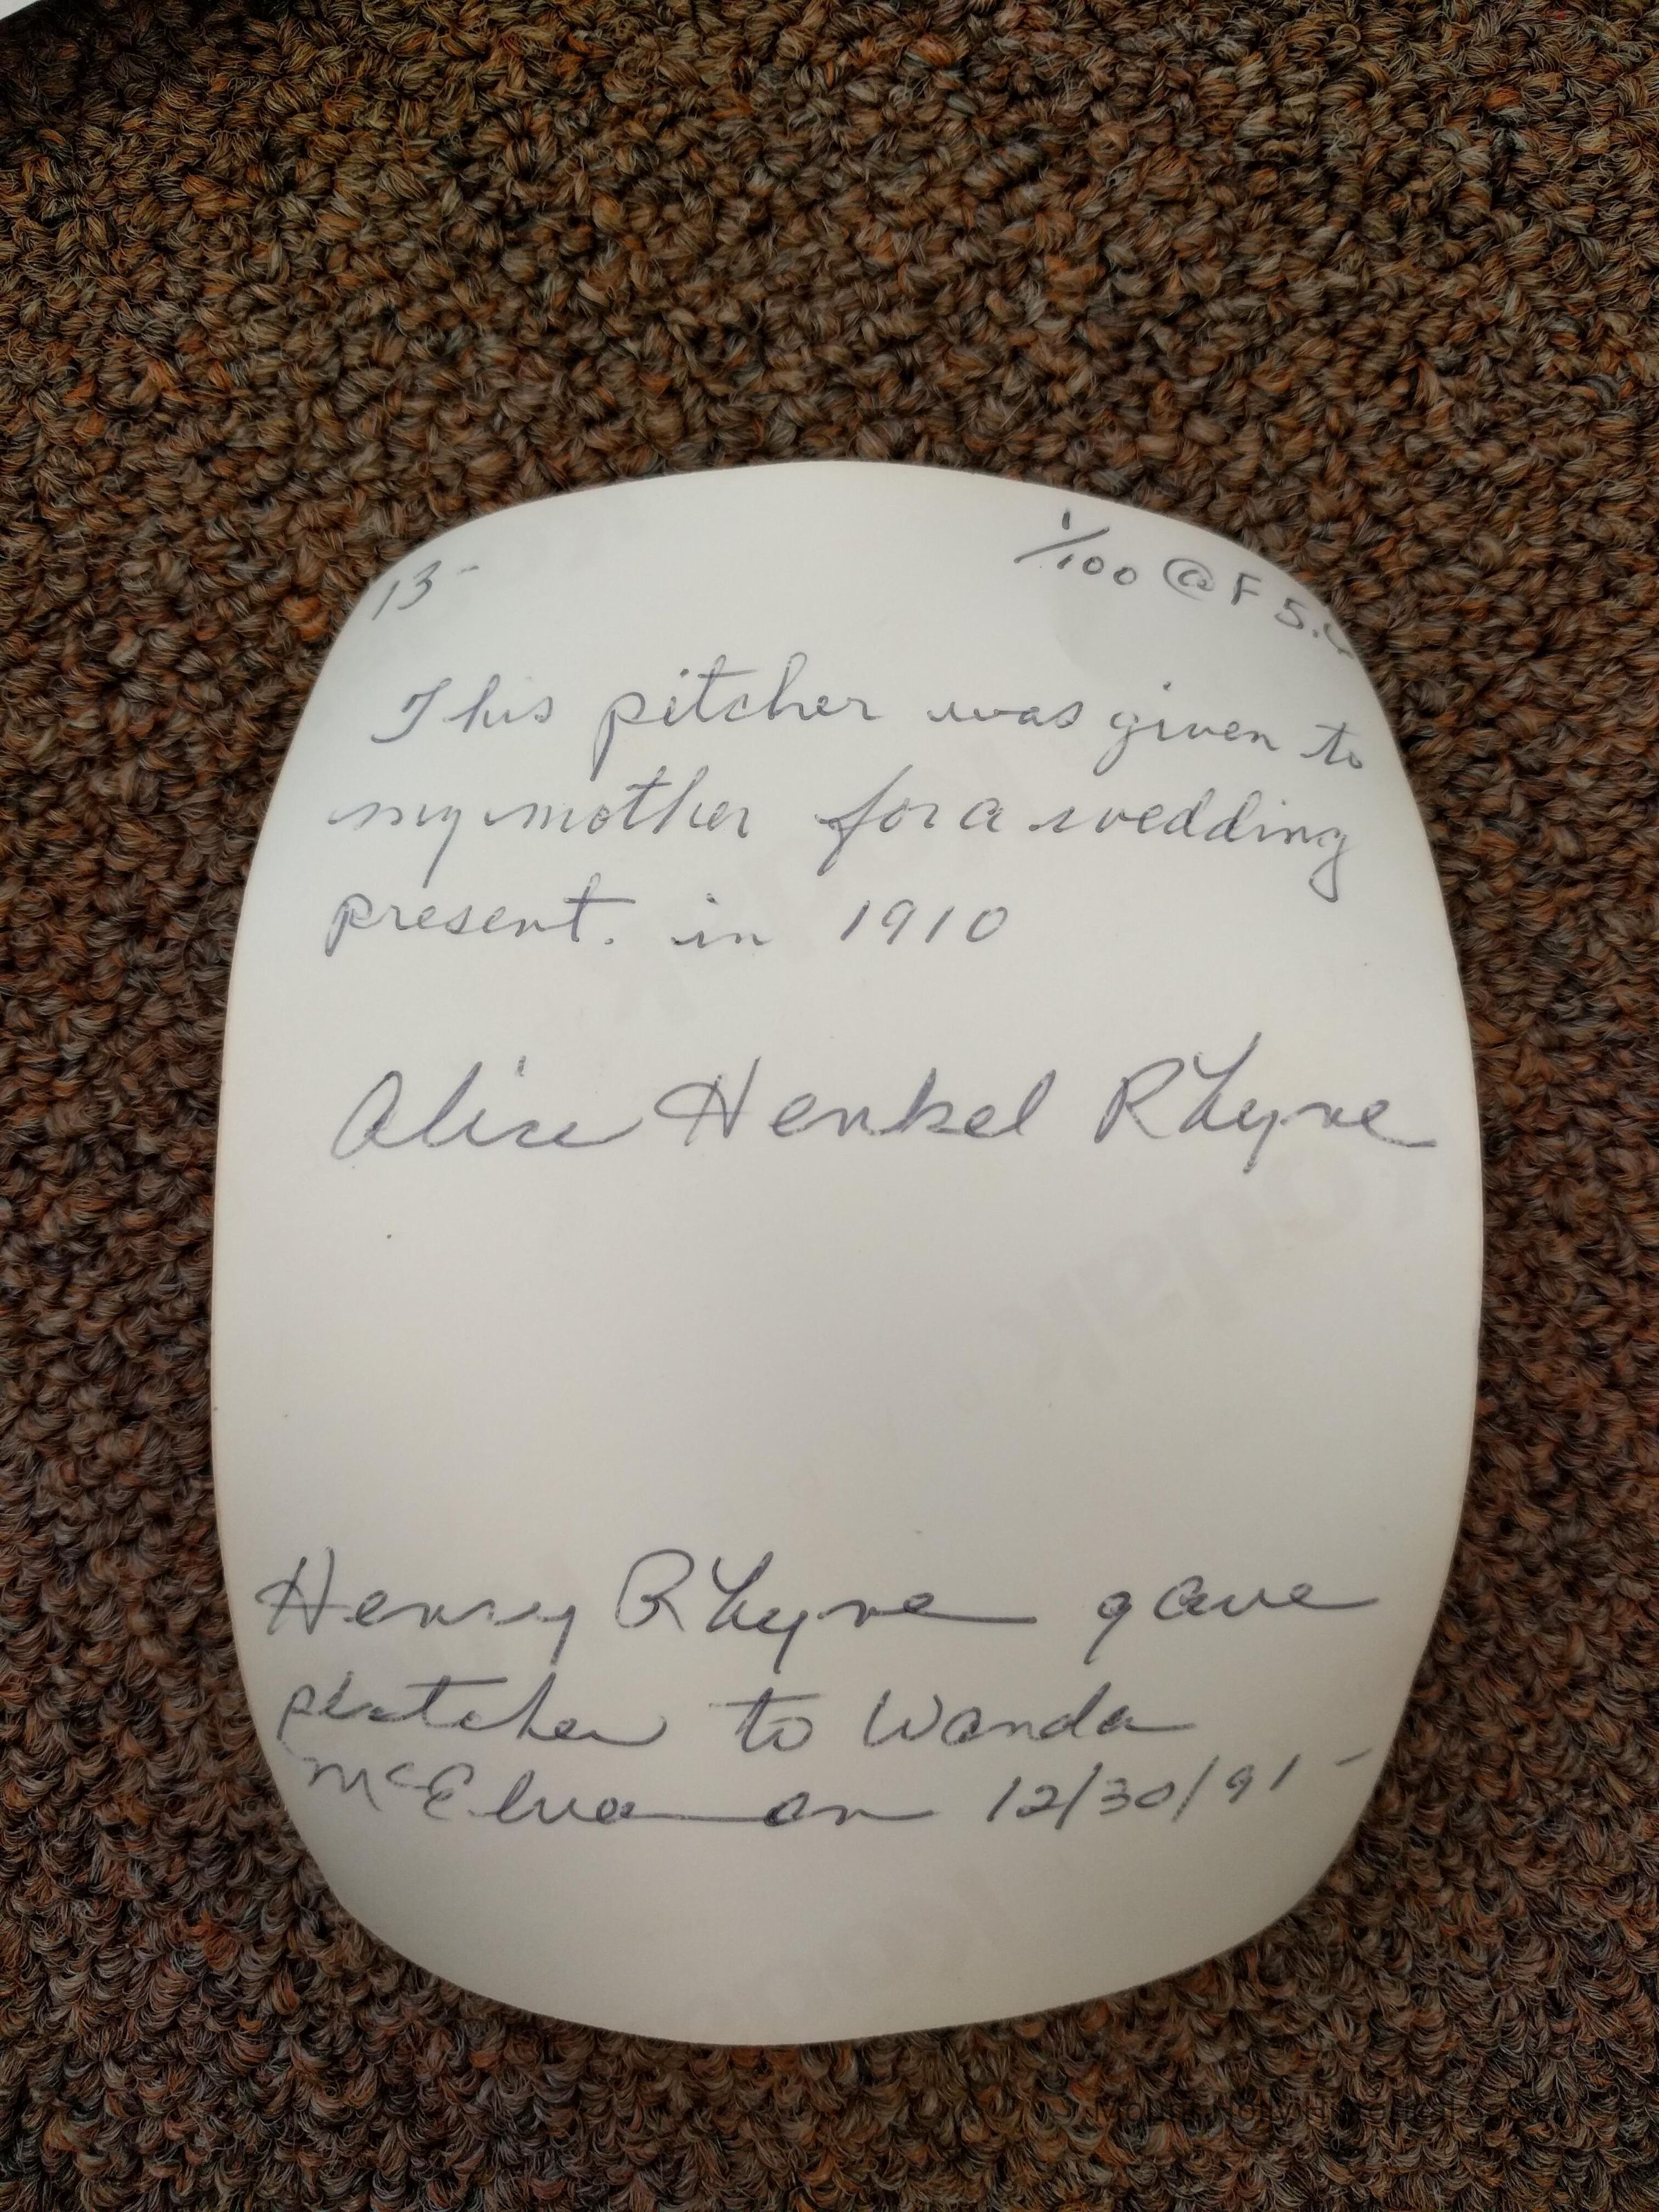 13-
1/100 @ F 5.
This pitcher was given to
my mother for a wedding
present. in 1910
Alice Henkel Rhyne
Kodak
Henry Rhyne gave
pitcher to Wanda
on 12/30/91-
Mount Holly Historical